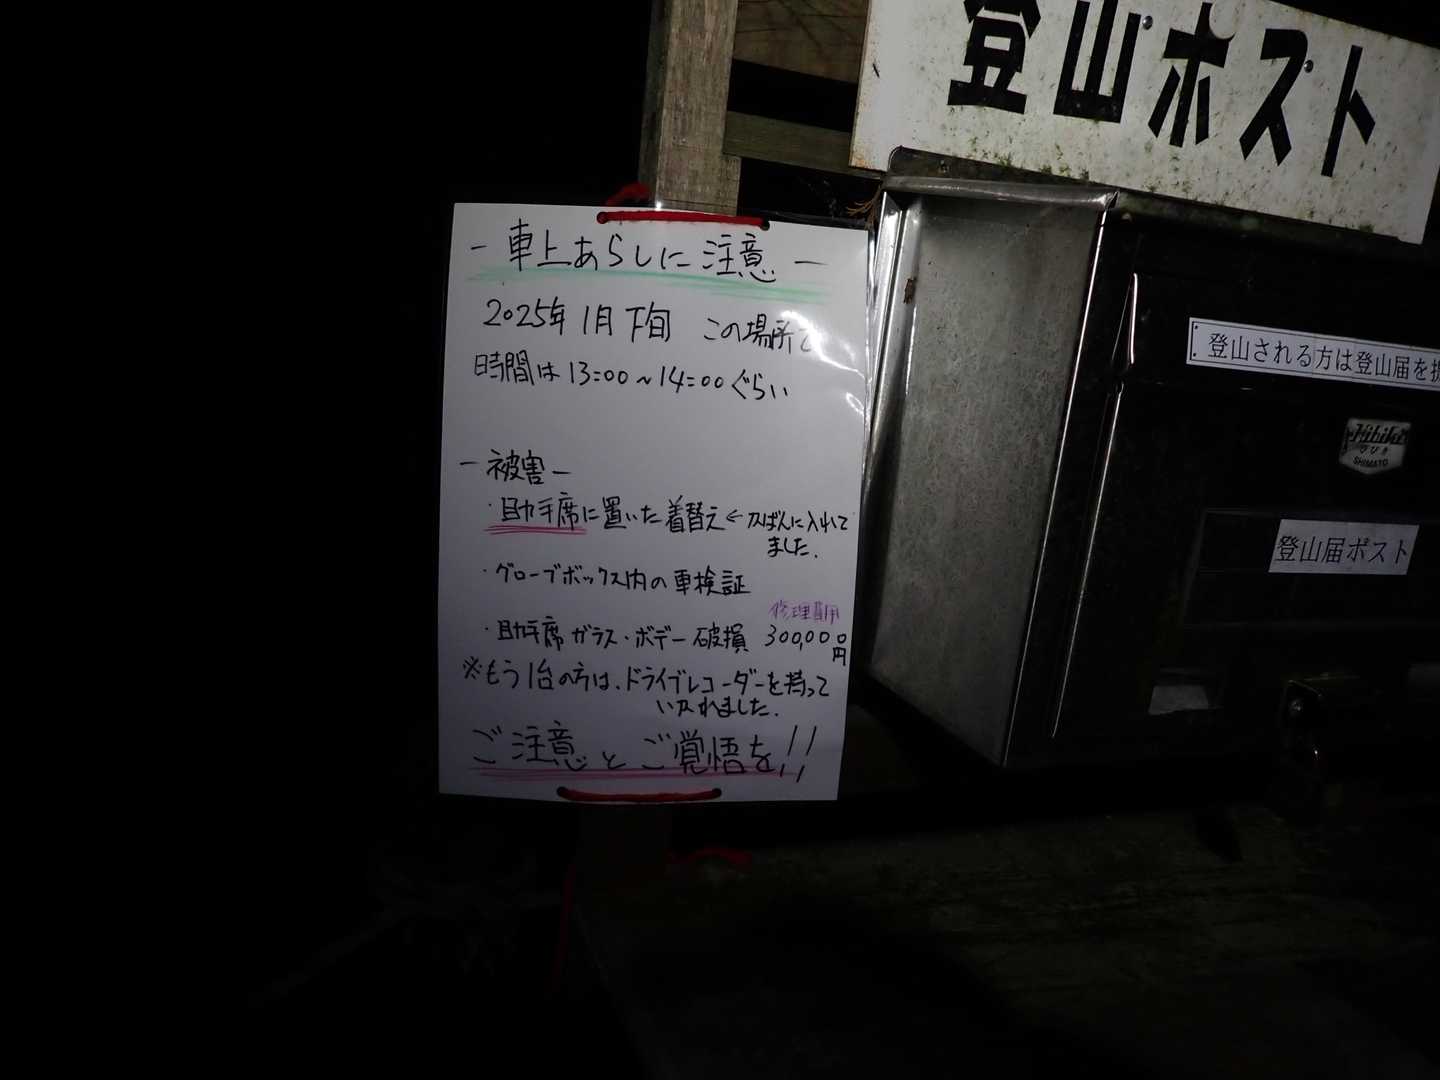 登山ポスト
－車上あらしに注意－
2025年1月下旬 この場所で
時間は13:00～14:00ぐらい
－被害－
・助手席に置いた着替え←かばんに入れて
ました.
・グローブボックス内の車検証
修理費用
・助手席ガラス・ボデー破損 300,000
円
※もう1台の方は、ドライブレコーダーを持って
いかれました.
ご注意とご覚悟を!!
登山される方は登山届を提
Hibiki
ひびき
SHIMATO
登山届ポスト